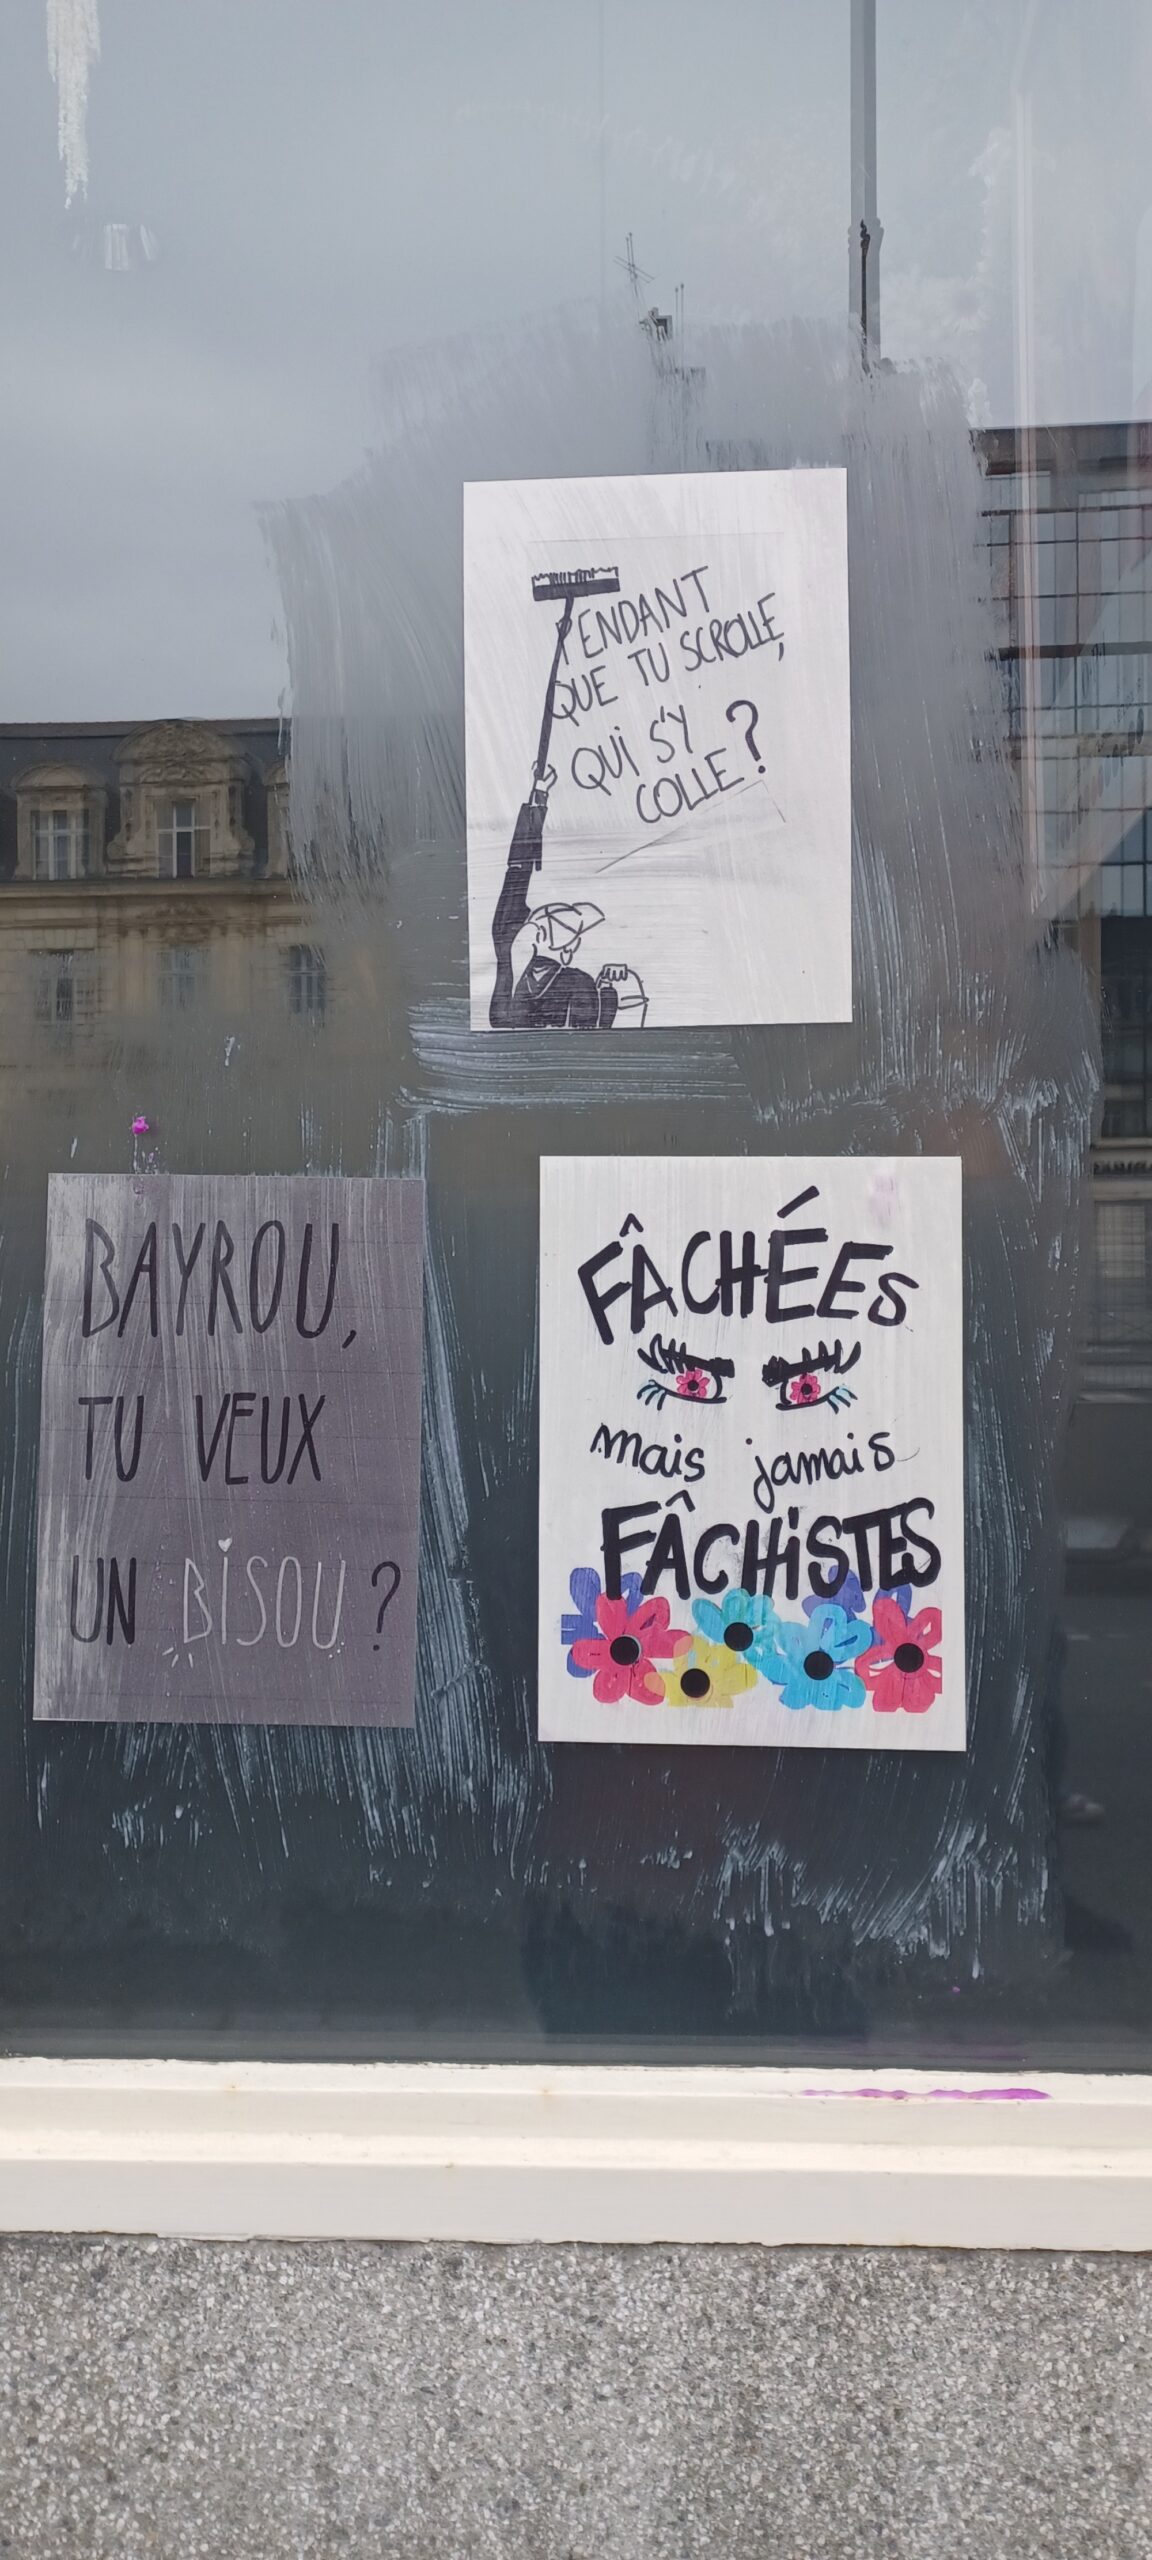 PENDANT
QUE TU SCROLLE,
QUI S'Y
COLLE ?
BAYROU,
TU VEUX
UN BISOU ?
FÂCHÉES
mais jamais
FÂCHISTES